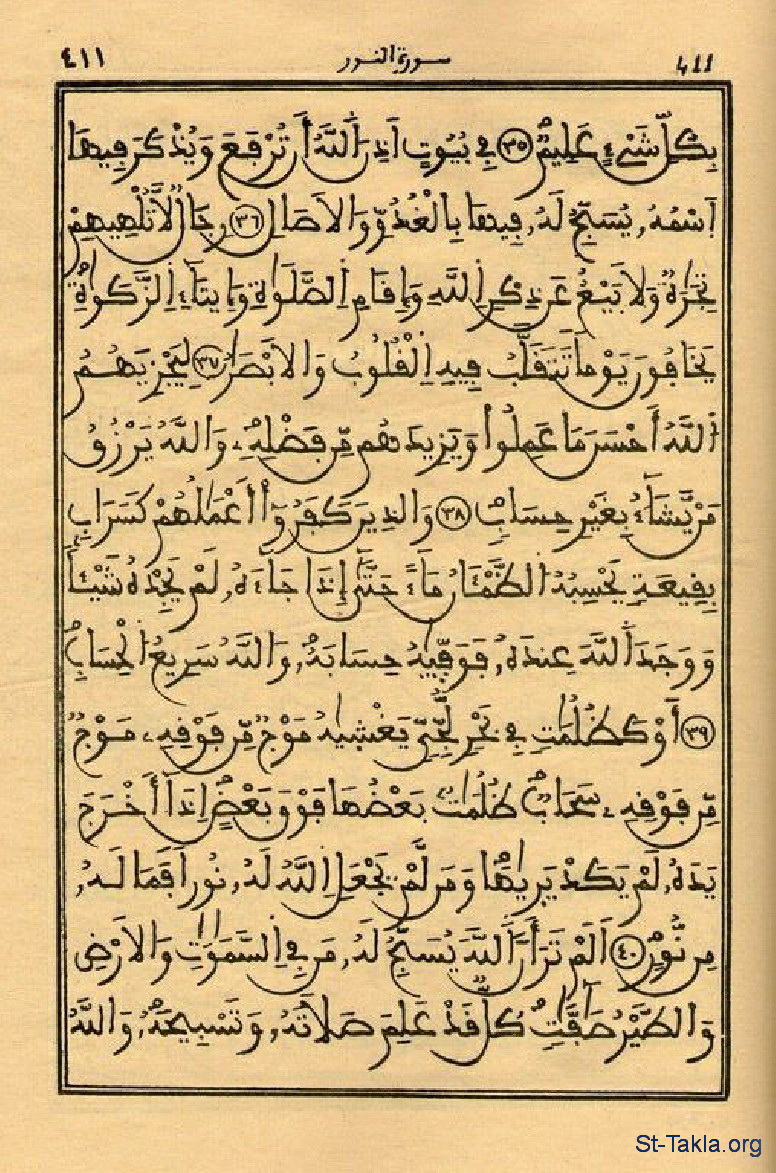 ٤١١ سورة النور 411
بِكُلِّ شَيْءٍ عَلِيمٌ ٣٥ فِي بُيُوتٍ أَذِنَ اللَّهُ أَن تُرْفَعَ وَيُذْكَرَ فِيهَا
اَسْمُهُ, يُسَبِّحُ لَهُ, فِيهَا بِالْغُدُوِّ وَالَاصَالِ ٣٦ رِجَالٌ لَّا تُلْهِيهِمْ
تِجَٰرَةٌ وَلَا بَيْعٌ عَن ذِكْرِ اِللَّهِ وَإِقَامِ اِلصَّلَوٰةِ وَإِيتَآءِ اِلزَّكَوٰةِ
يَخَافُونَ يَوْماً تَتَقَلَّبُ فِيهِ اِلْقُلُوبُ وَالَابْصَٰرُ ٣٧ لِيَجْزِيَهُمُ
اُللَّهُ أَحْسَنَ مَا عَمِلُواْ وَيَزِيدَهُم مِّن فَضْلِهِۦ وَاللَّهُ يَرْزُقُ
مَنْ يَّشَآءُ بِغَيْرِ حِسَابٍ ٣٨ وَالذِينَ كَفَرُوٓاْ أَعْمَٰلُهُمْ كَسَرَابٍ
بِقِيعَةٍ يَحْسِبُهُ اُلظَّمْـَٔانُ مَآءً حَتَّىٰٓ إِذَا جَآءَهُ, لَمْ يَجِدْهُ شَيْـٔاً
وَوَجَدَ اَللَّهَ عِندَهُ, فَوَفّ۪يٰهُ حِسَابَهُ, وَاللَّهُ سَرِيعُ اُلْحِسَابِ
٣٩ أَوْ كَظُلُمَٰتٍ فِي بَحْرٍ لُّجِّيٍّ يَغْشَيٰهُ مَوْجٌ مِّن فَوْقِهِۦ مَوْجٌ
مِّن فَوْقِهِۦ سَحَابٌ ظُلُمَٰتٌۢ بَعْضُهَا فَوْقَ بَعْضٍ اِذَآ أَخْرَجَ
يَدَهُ, لَمْ يَكَدْ يَر۪يٰهَا وَمَن لَّمْ يَجْعَلِ اِللَّهُ لَهُ, نُوراً فَمَا لَهُ,
مِن نُّورٍ ٤٠ اَلَمْ تَرَ أَنَّ اَللَّهَ يُسَبِّحُ لَهُ, مَن فِي اِلسَّمَٰوَٰتِ وَالَارْضِ
وَالطَّيْرُ صَٰٓفَّٰتٍ كُلٌّ قَدْ عَلِمَ صَلَاتَهُ, وَتَسْبِيحَهُ, وَاللَّهُ
St-Takla.org